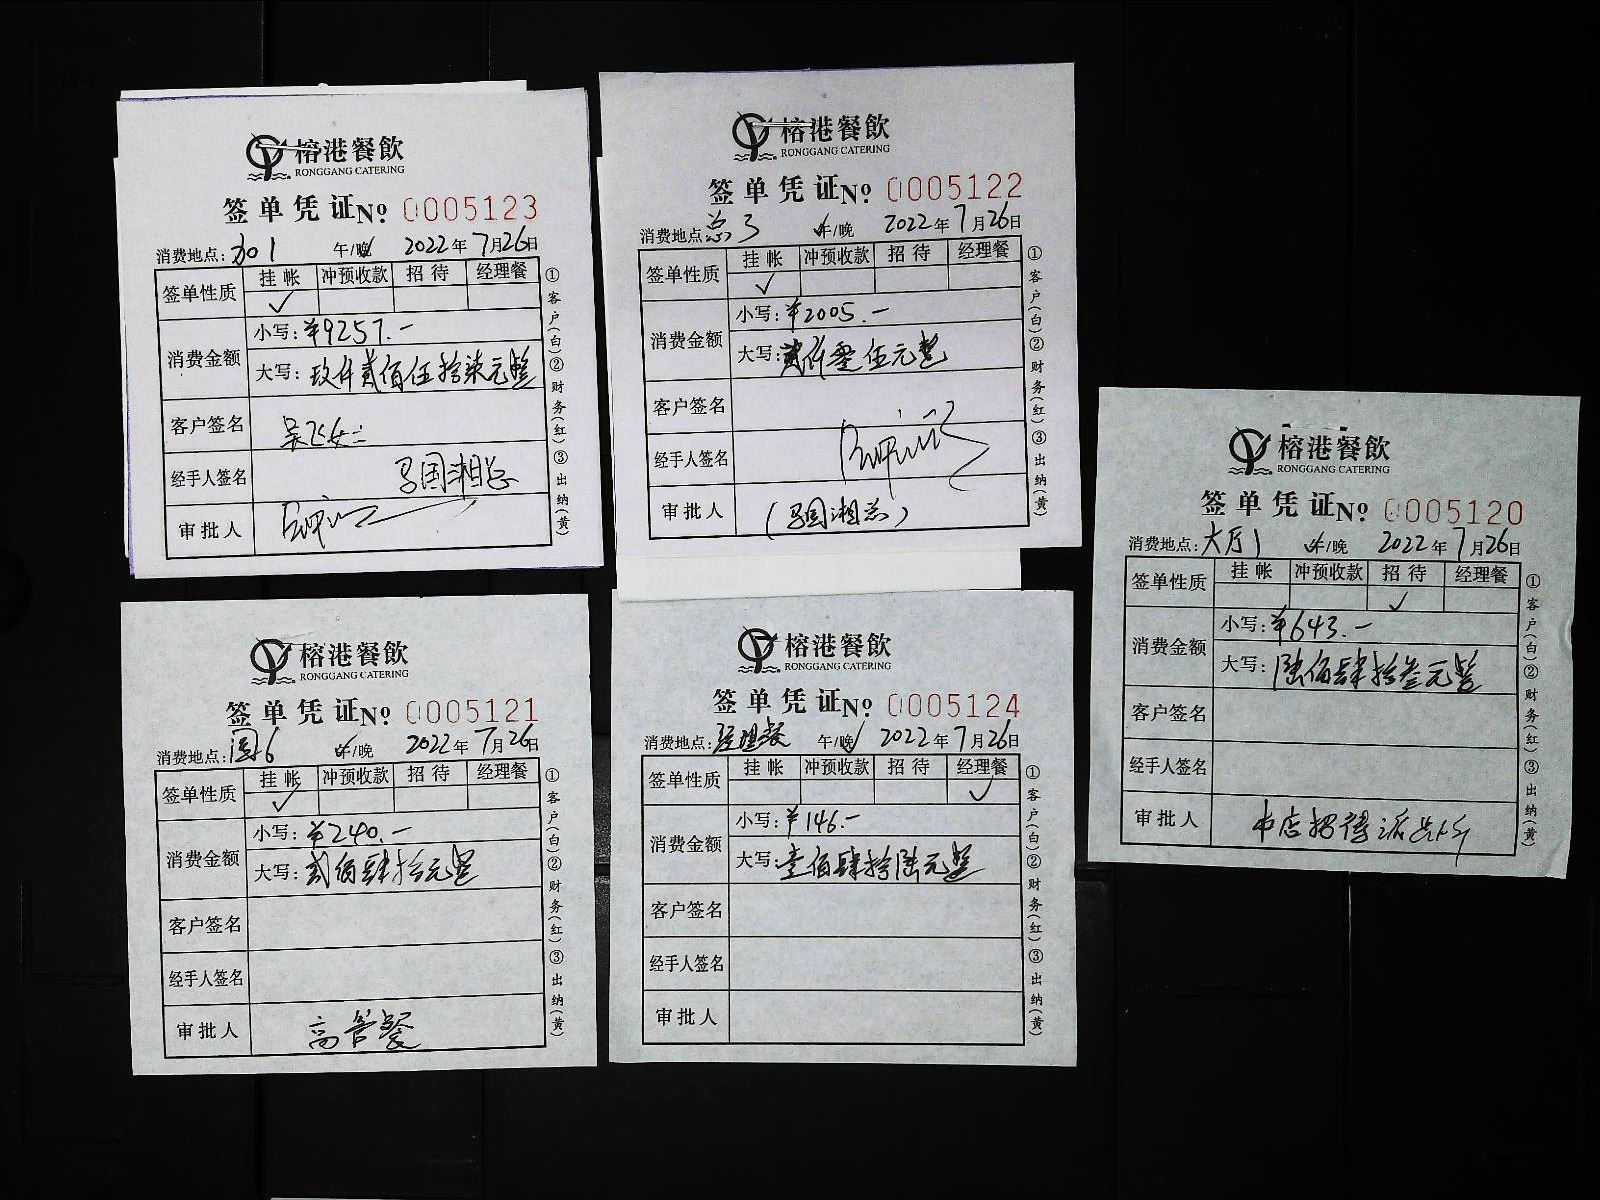 榕港餐飲
RONGGANG CATERING
签单凭证№ 0005123
消费地点: 午/晚 2022年7月26日
签单性质 挂帐 冲预收款 招待 经理餐
✓
消费金额 小写:¥9257.一
大写:玖仟贰佰伍拾柒元整
客户签名
经手人签名 马国湘总
审批人
①客户(白)②财务(红)③出纳(黄)
榕港餐飲
RONGGANG CATERING
签单凭证№ 0005122
消费地点:总3 午/晚 2022年7月26日
签单性质 挂帐 冲预收款 招待 经理餐
✓
消费金额 小写:¥2005.一
大写:贰仟零伍元整
客户签名
经手人签名
审批人 (马国湘总)
①客户(白)②财务(红)③出纳(黄)
榕港餐飲
RONGGANG CATERING
签单凭证№ 0005121
消费地点: 午/晚 2022年7月26日
签单性质 挂帐 冲预收款 招待 经理餐
✓
消费金额 小写:¥240.一
大写:贰佰肆拾元整
客户签名
经手人签名
审批人 高管餐
①客户(白)②财务(红)③出纳(黄)
榕港餐飲
RONGGANG CATERING
签单凭证№ 0005124
消费地点:经理餐 午/晚 2022年7月26日
签单性质 挂帐 冲预收款 招待 经理餐
✓
消费金额 小写:¥146.一
大写:壹佰肆拾陆元整
客户签名
经手人签名
审批人
①客户(白)②财务(红)③出纳(黄)
榕港餐飲
RONGGANG CATERING
签单凭证№ 0005120
消费地点:大厅1 午/晚 2022年7月26日
签单性质 挂帐 冲预收款 招待 经理餐
✓
消费金额 小写:¥643.一
大写:陆佰肆拾叁元整
客户签名
经手人签名
审批人 本店招待
①客户(白)②财务(红)③出纳(黄)